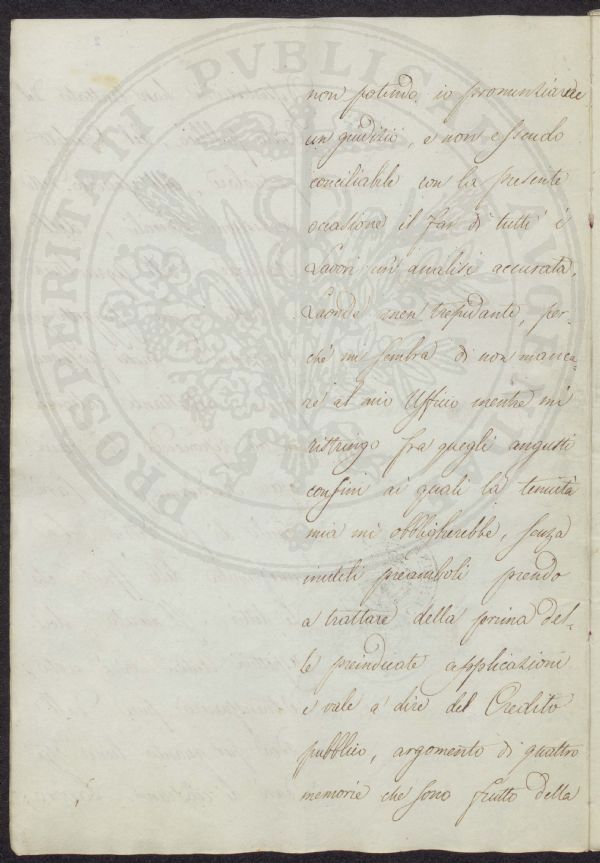 non potendo io pronunziare
un giudizio, e non essendo
conciliabile con la presente
occasione il far di tutti i
Lavori un' analisi accurata.
Laonde men trepidante, per-
chè mi sembra di non manca-
re al mio Ufficio mentre mi
ristringo fra quegli angusti
confini ai quali la tenuità
mia mi obbligherebbe, senza
inutili preamboli prendo
a trattare della prima del-
le preindicate applicazioni
e vale a dire del Credito
pubblico, argomento di quattro
memorie che sono frutto della
PROSPERITATI PVBLICAE AVGENDAE